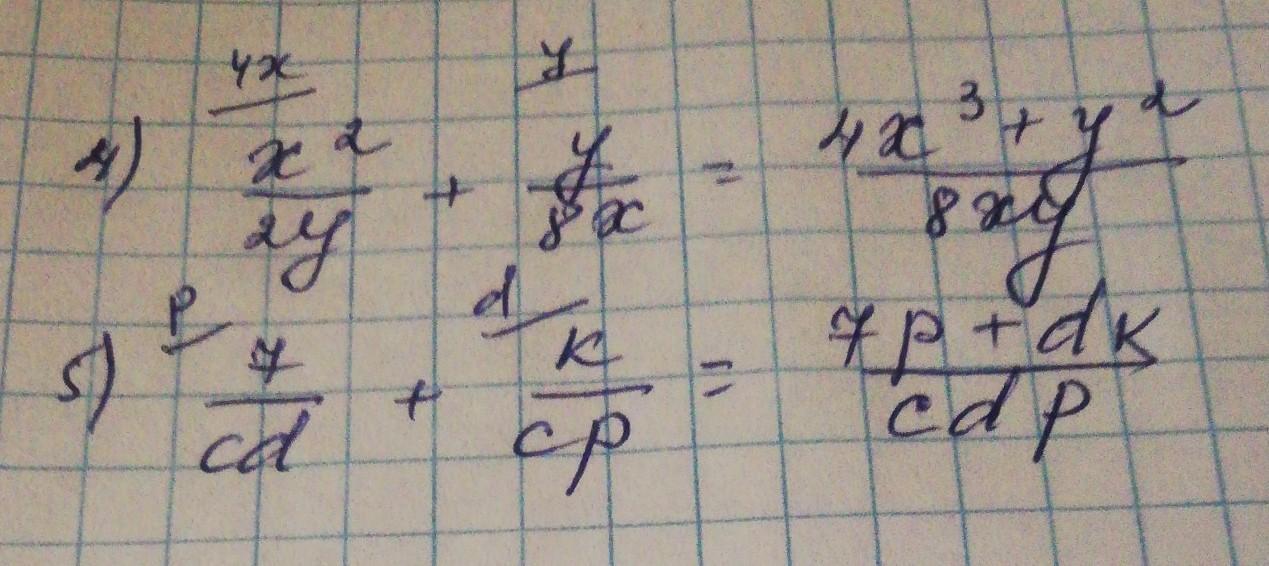 4) 4x/ x²/2y + y/ y/8x = (4x³ + y²)/8xy
5) p/ 7/cd + d/ k/cp = (7p + dk)/cdp